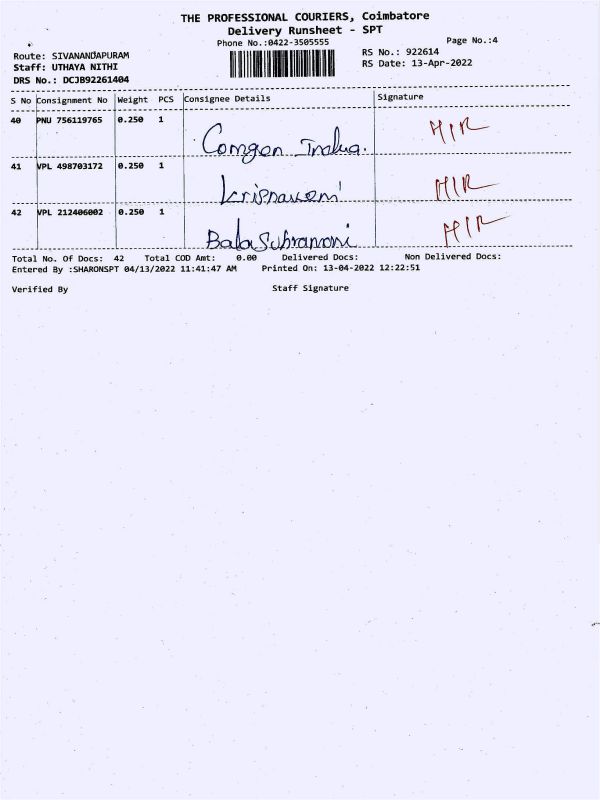 THE PROFESSIONAL COURIERS, Coimbatore
Delivery Runsheet - SPT
Phone No.:0422-3505555
Page No.:4
Route: SIVANANDAPURAM
Staff: UTHAYA NITHI
DRS No.: DCJB92261404
RS No.: 922614
RS Date: 13-Apr-2022
S No Consignment No Weight PCS Consignee Details Signature
40 PNU 756119765 0.250 1 MIR
41 VPL 498703172 0.250 1 Krisnaveni MIR
42 VPL 212406002 0.250 1 BalaSubramoni MIR
Total No. Of Docs: 42 Total COD Amt: 0.00 Delivered Docs: Non Delivered Docs:
Entered By :SHARONSPT 04/13/2022 11:41:47 AM Printed On: 13-04-2022 12:22:51
Verified By Staff Signature